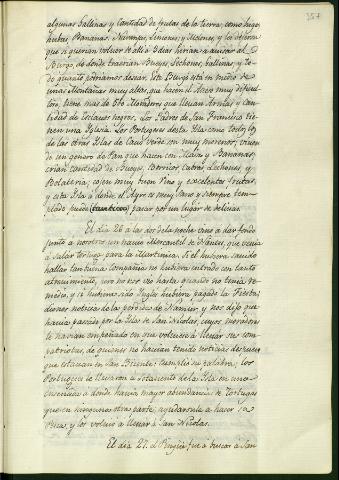 357
algunas Gallinas y Cantidad de frutas de la tierra, como higos,
hubas, Bananas, Naranjas, Limones, y Melones, y les dijeron
que si querian volver de alli a 3 dias hirian a avisar al
Burgo, de donde traerian Bueyes, Lechones, Gallinas, y to-
do quanto podriamos desear. Este Burgo està en medio de
unas Montañas muy altas, que hacen el Acceso muy dificul-
toso, tiene mas de 500 Hombres que llevan Armas y can-
tidad de Esclavos negros. Los Padres de San Francisco tie-
nen una Iglesia. Los Portugueses desta Isla como todos los
de las otras Islas de Cavo Verde son muy morenos, viven
de un genero de Pan que hacen con Maiz y Bananas,
crian Cantidad de Bueyes, Borricos, Cabras, Lechones, y
Bolateria, cojen muy buen Vino y excelentes frutas,
y esta Isla a donde el Ayre es muy Sano y siempre tem-
plado puede (tambien) pasar por un lugar de delicias.
El dia 26 a las dos de la noche vino a dar fondo
junto a nosotros un navio Mercantil de Nantes, que venia
a salar tortuga para la Martinica. Si el hubiera savido
hallar tan buena Compañia no hubiera entrado con tanto
atrevimiento, pero no nos vio hasta quando no tenia re-
medio, y si hubiera sido Ingles hubiera pagado la Fiesta;
dionos noticia de la perdida de Namur, y nos dijo que
havia pasado por la Isla de San Nicolas, cuyos moradores
le havian empeñado en que volviese a llevar sus com-
patriotas, de quienes no havian tenido noticias despues
que estavan en San Vicente: Cumplio su palabra, los
Portugueses le llevaron a Sotavento de la Isla en una
ensenada a donde havia mayor abundancia de Tortugas
que en ninguna otra parte, ayudaronle a hacer su
Pesca, y los volvio a llevar a San Nicolas.
El dia 27. el Pingüe fue a buscar a San